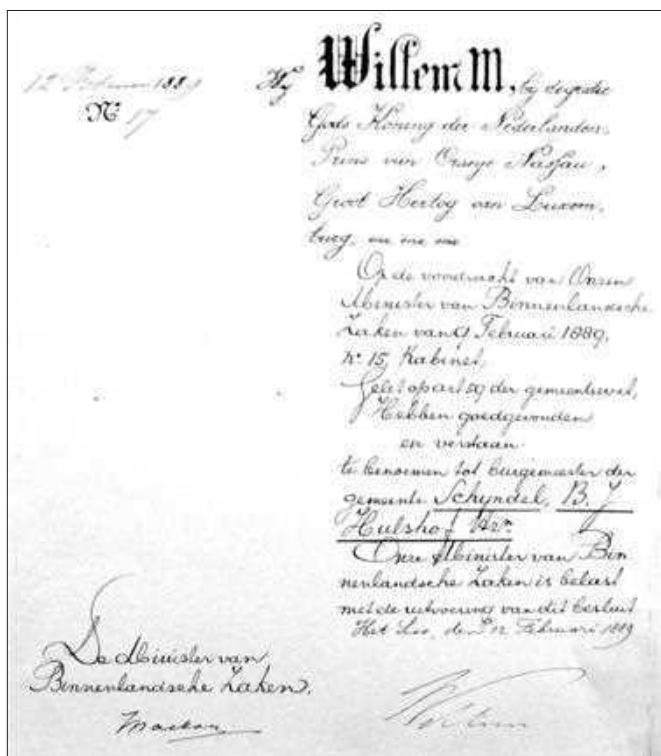 12 Februari 1889
No 17
Wy Willem III, bij de gratie
Gods Koning der Nederlanden,
Prins van Oranje Nassau,
Groot Hertog van Luxem,
burg, enz enz enz
Op de voordracht van Onzen
Minister van Binnenlandsche
Zaken van 11 Februari 1889,
No 15, Kabinet,
Gelet op art 59 der gemeentewet,
Hebben goedgevonden
en verstaan
te benoemen tot burgemeester der
gemeente Schyndel, B. J
Hulshof Hzn
Onze Minister van Bin
nenlandsche Zaken is belast
met de uitvoering van dit besluit
Het Loo, den 12 Februari 1889
De Minister van
Binnenlandsche Zaken.
Mackay
Willem